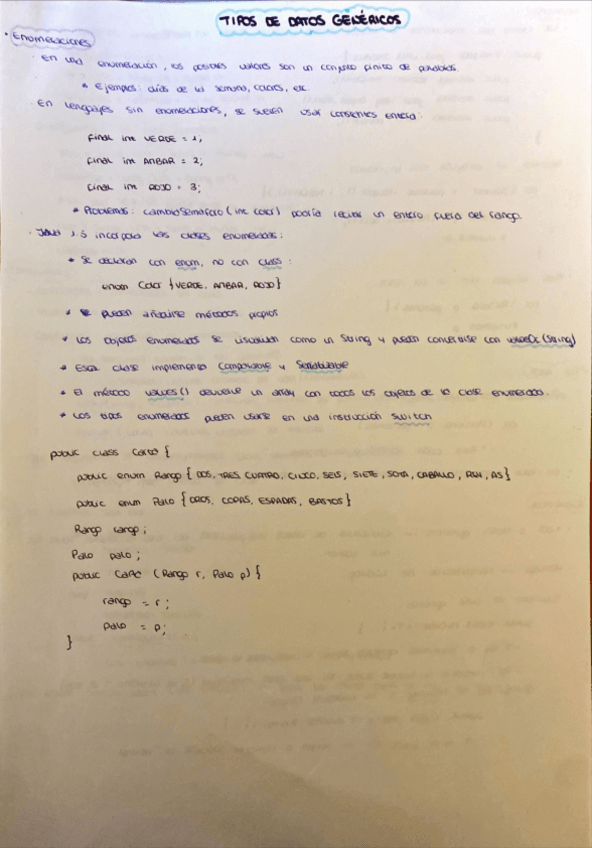 TIPOS DE DATOS GENÉRICOS
· Enumeraciones
· En una enumeración, los posibles valores son un conjunto finito de
* Ejemplos: días de la semana, colores, etc.
En lenguajes sin enumeraciones, se suelen usar constantes
final int VERDE = 1;
final int AMBAR = 2;
final int ROJO = 3;
* Problemas: cambioSemaforo (int color) podría recibir un entero fuera del rango.
· JAVA 1.5 incorpora las clases enumeradas:
* Se declaran con enum, no con class:
enum Color {VERDE, AMBAR, ROJO}
* pueden añadirse métodos propios
* Los objetos enumerados se visualizan como un String y pueden convertirse con valueOf(String)
* Esta clase implementa Comparable y Serializable
* El método values() devuelve un array con todos los objetos de la clase enumerada.
* Los tipos enumerados pueden usarse en una instrucción switch
public class Carta {
public enum Rango { DOS, TRES CUATRO, CINCO, SEIS, SIETE, SOTA, CABALLO, REY, AS}
public enum Palo { OROS, COPAS, ESPADAS, BASTOS}
Rango rango;
Palo palo;
public (Rango r, Palo p) {
rango = r;
palo = p;
}